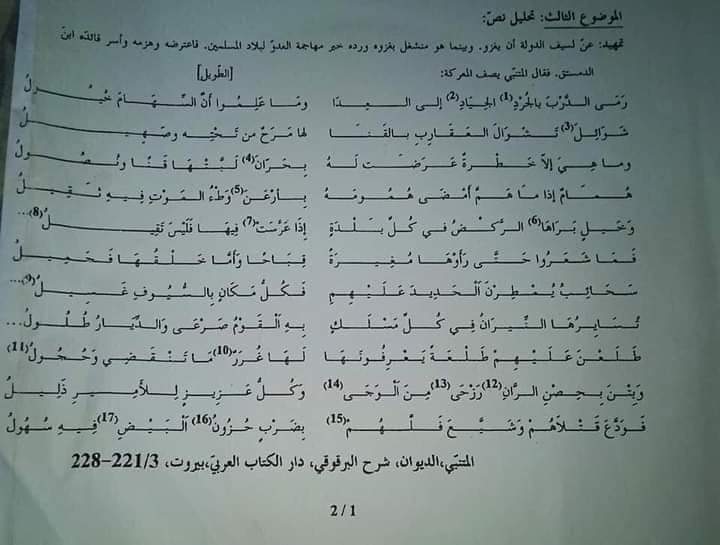 الموضوع الثالث: تحليل نصّ:
تمهيد: عنّ لسيف الدولة أن يغزو. وبينما هو منشغل بغزوه ورده خبر مهاجمة العدوّ لبلاد المسلمين. فاعترضه وهزمه وأسر قائده ابن
الدمستق. فقال المتنبّي يصف المعركة: [الطّويل]
رَمَى الدَّرْبَ بالجُرْدِ(1) الجِيَادِ(2) إلى العِدَا وَمَا عَلِمُوا أنَّ السِّهَامَ خُيُولُ
شَوَائِلَ(3) تَشْوَالَ العَقَارِبِ بالقَنَا لها مَرَحٌ من تَحْتِهِ وصَهِيلُ
وما هِيَ إلاَّ خَطْرَةٌ عَرَضَتْ لَهُ بِحَرَّانَ(4) لَبَّتْهَا قَنًا ونُصُولُ
هُمَامٌ إذا ما هَمَّ أَمْضَى هُمُومَهُ بِأَرْعَنَ(5) وَطْءُ المَوْتِ فِيهِ ثَقِيلُ
وَخَيْلٍ بَرَاهَا(6) الرَّكْضُ في كُلِّ بَلْدَةٍ إذَا عَرَّسَتْ(7) فِيهَا فَلَيْسَ تَقِيلُ(8)...
فَمَا شَعَرُوا حَتَّى رَأَوْهَا مُغِيرَةً قِبَاحًا وَأَمَّا خَلْقُهَا فَجَمِيلُ
سَحَائِبُ يُمْطِرْنَ الْحَدِيدَ عَلَيْهِمِ فَكُلُّ مَكَانٍ بِالسُّيُوفِ غَسِيلُ(9)...
تُسَايِرُهَا النِّيرَانُ فِي كُلِّ مَسْلَكٍ بِهِ الْقَوْمُ صَرْعَى وَالدِّيَارُ طُلُولُ...
طَلَعْنَ عَلَيْهِمْ طَلْعَةً يَعْرِفُونَهَا لَهَا غُرَرٌ(10) مَا تَنْقَضِي وَحُجُولُ(11)
وَبِتْنَ بِحِصْنِ الرَّانِ(12) رَزْحَى(13) مِنَ الْوَجَى(14) وَكُلُّ عَزِيزٍ لِلأَمِيرِ ذَلِيلُ
فَوَدَّعَ قَتْلاَهُمْ وَشَيَّعَ فَلَّهُمْ(15) بِضَرْبٍ حُزُونُ(16) الْبَيْضِ(17) فِيهِ سُهُولُ
المتنبّي،الديوان، شرح البرقوقي، دار الكتاب العربيّ،بيروت، 221/3-228
2 / 1